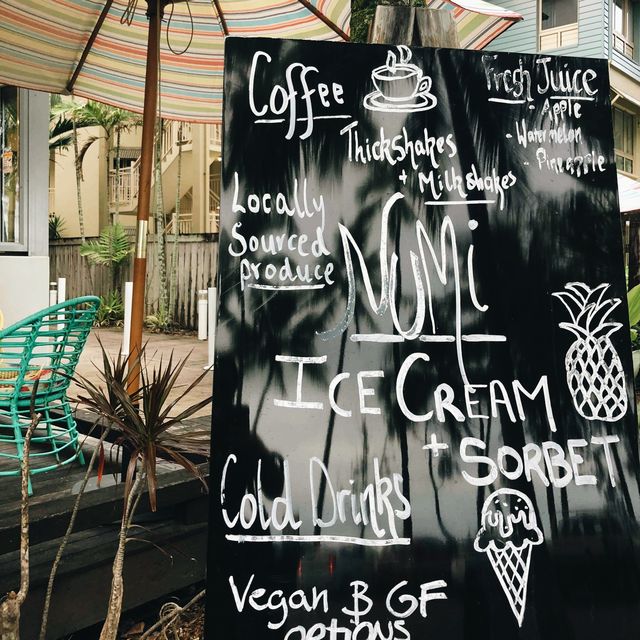 Coffee
Fresh Juice
- Apple
- Watermelon
- Pineapple
Thickshakes
+ Milkshakes
Locally
Sourced
produce
NuMi
ICE CREAM
+ SORBET
Cold Drinks
Vegan B GF
options